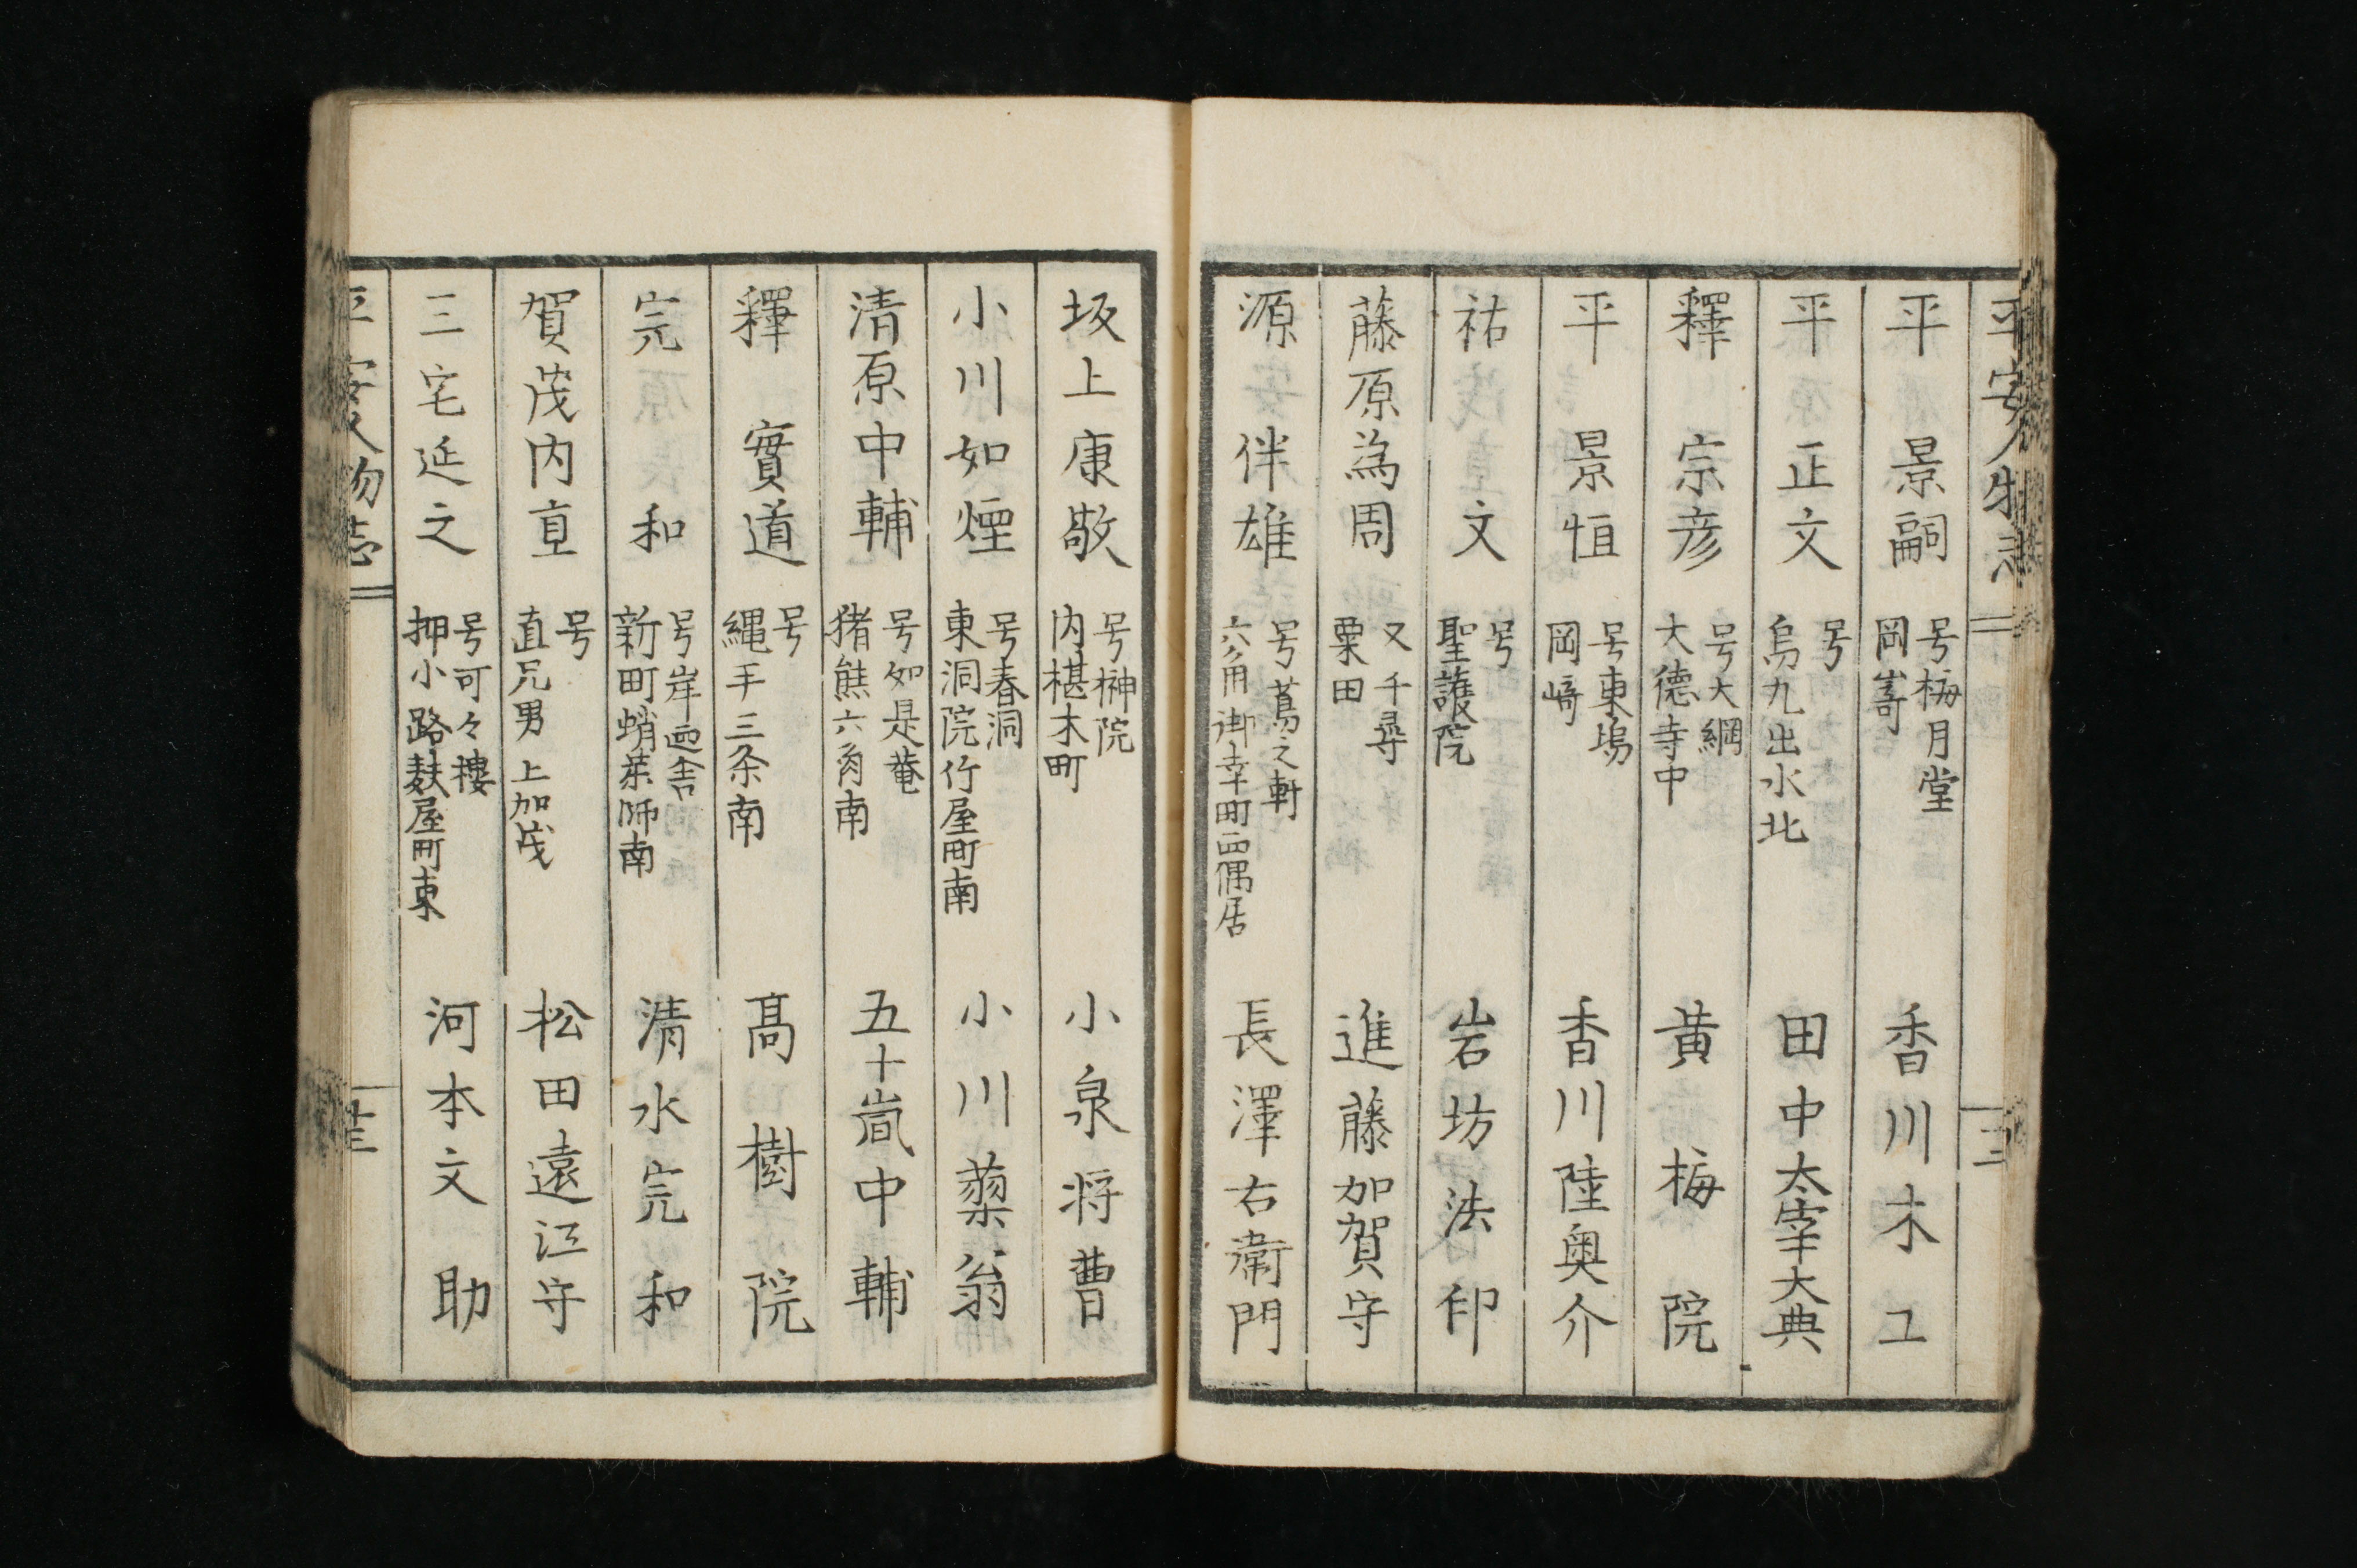 平安人物志
平 景嗣 号梅月堂 岡嵜 香川木工
平 正文 号 烏丸出水北 田中太宰大典
釋 宗彦 号大綱 大德寺中 黄梅院
平 景恒 号東塢 岡﨑 香川陸奥介
祐 文 号 聖護院 岩坊法印
藤原為周 又千尋 粟田 進藤加賀守
源 伴雄 号蔦之軒 六角御幸町西偶居 長澤右衛門
坂上康敬 号榊院 内椹木町 小泉将曹
小川如煙 号春洞 東洞院竹屋町南 小川蘂翁
清原中輔 号如是菴 猪熊六角南 五十嵐中輔
釋 實道 号 縄手三条南 髙樹院
完 和 号岸迺舎 新町蛸薬師南 清水完和
賀茂内直 号 直兄男 上加茂 松田遠江守
三宅延之 号可々樓 押小路麸屋町東 河本文助
平安人物志